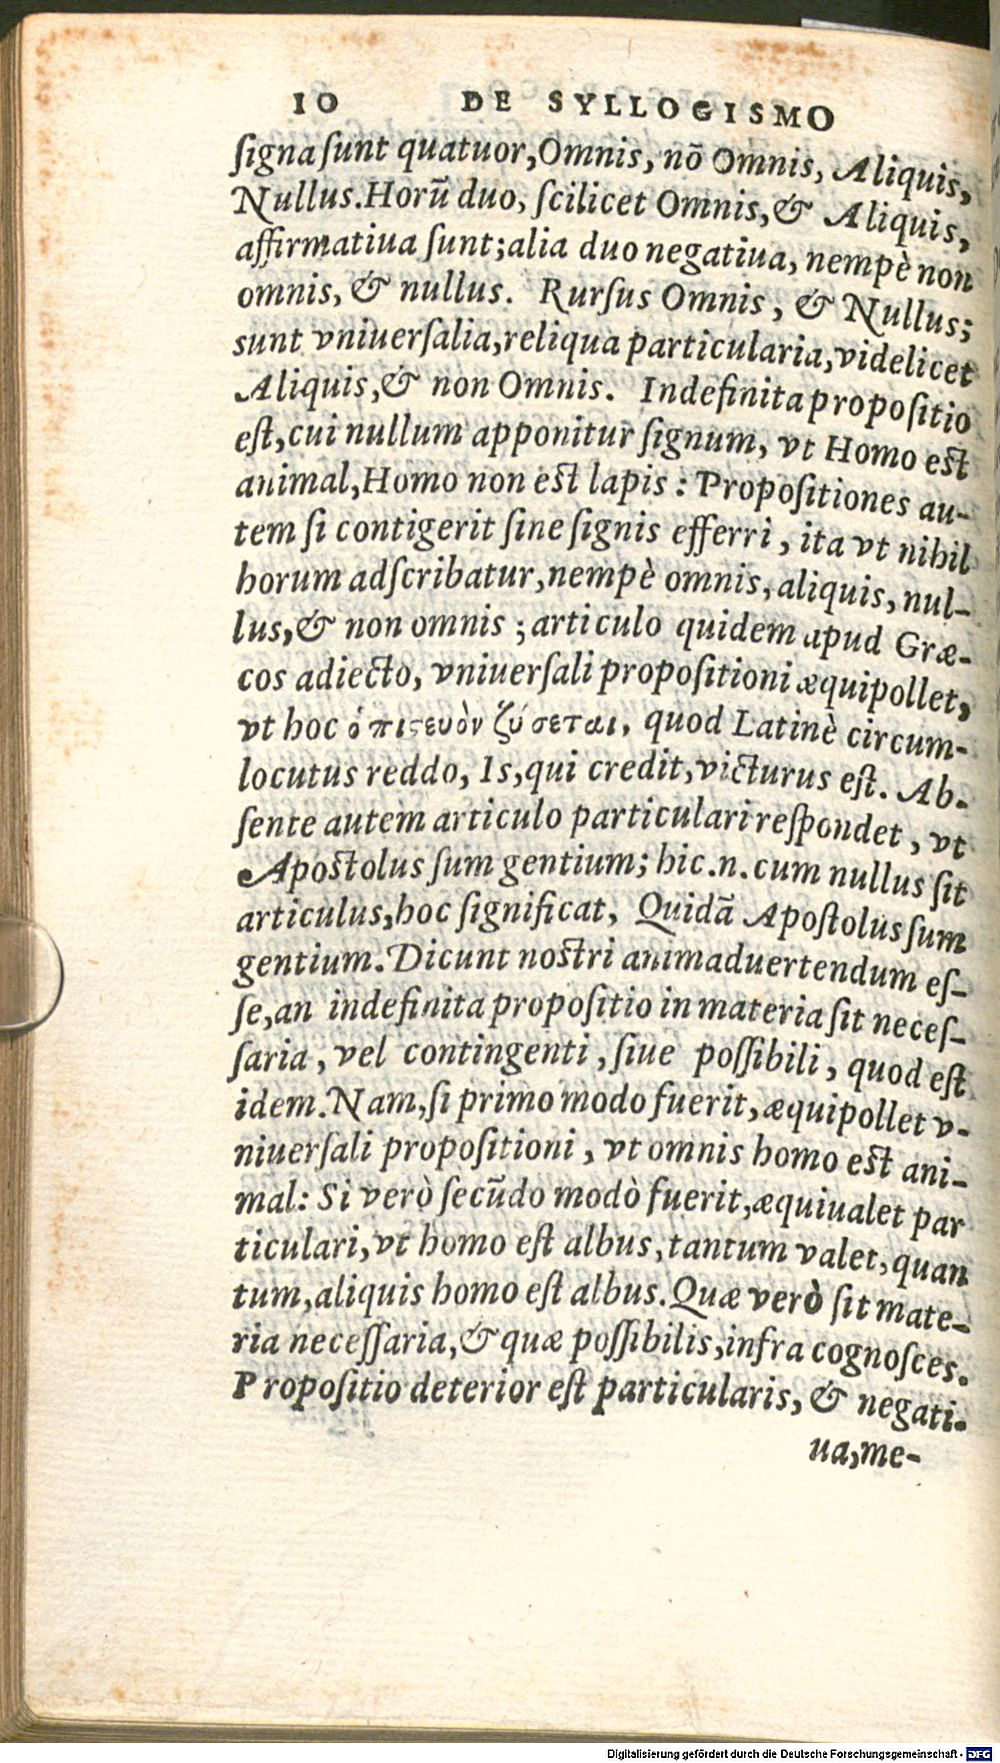 10 DE SYLLOGISMO
ſigna ſunt quatuor,Omnis, nõ Omnis, Aliquis,
Nullus.Horũ duo, ſcilicet Omnis,& Aliquis,
affirmatiua ſunt;alia duo negatiua, nempè non
omnis, & nullus. Rurſus Omnis, & Nullus;
sunt vniuerſalia,reliqua particularia,videlicet
Aliquis,& non Omnis. Indefinita propoſitio
eſt,cui nullum apponitur ſignum, vt Homo eſt
animal,Homo non eſt lapis: Propoſitiones au-
tem ſi contigerit ſine ſignis efferri, ita vt nihil
horum adſcribatur,nempè omnis, aliquis, nul-
lus,& non omnis; articulo quidem apud Græ-
cos adiecto, vniuerſali propoſitioni æquipollet,
vt hoc ὁ πιϛευὸν ζύσεται, quod Latinè circum-
locutus reddo, Is,qui credit,victurus eſt. Ab-
ſente autem articulo particulari reſpondet, vt
Apoſtolus ſum gentium; hic.n.cum nullus ſit
articulus,hoc ſignificat, Quidã Apoſtolus ſum
gentium.Dicunt noſtri animaduertendum eſ-
ſe,an indefinita propoſitio in materia ſit neceſ-
ſaria, vel contingenti, ſiue poſſibili, quod eſt
idem.Nam,ſi primo modo fuerit,æquipollet v-
niuerſali propoſitioni, vt omnis homo eſt ani-
mal: Si verò ſecũdo modò fuerit,æquiualet par
ticulari,vt homo eſt albus,tantum valet,quan
tum,aliquis homo eſt albus.Quæ verò ſit mate-
ria neceſſaria,& quæ poſſibilis,infra cognoſces.
Propoſitio deterior eſt particularis, & negati-
ua,me-
Digitalisierung gefördert durch die Deutsche Forschungsgemeinschaft - DFG